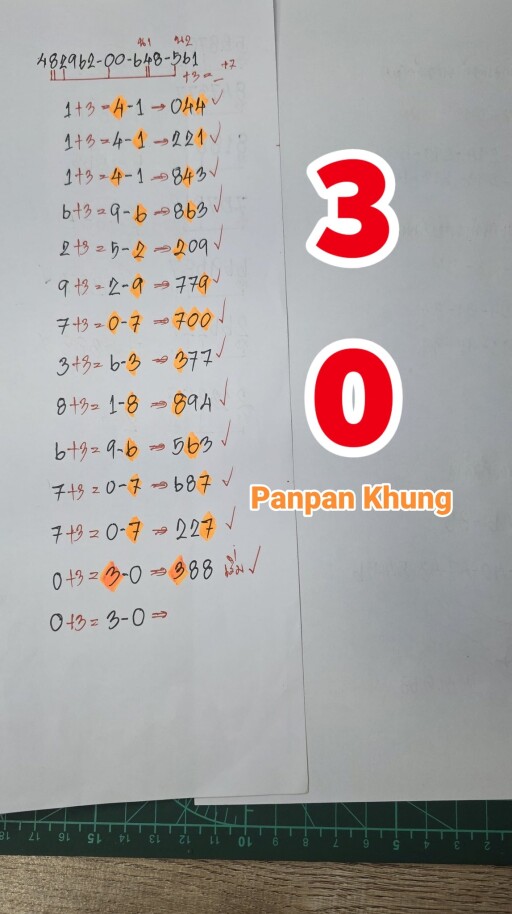 น1 น2
482962-00-648-561
+3 = _ +7
1+3=4-1 ⇒ 044 ✓
1+3=4-1 ⇒ 221 ✓
1+3=4-1 ⇒ 843 ✓
6+3=9-6 ⇒ 863 ✓
2+3=5-2 ⇒ 209 ✓
9+3=2-9 ⇒ 779 ✓
7+3=0-7 ⇒ 700 ✓
3+3=6-3 ⇒ 377 ✓
8+3=1-8 ⇒ 894 ✓
6+3=9-6 ⇒ 563 ✓
7+3=0-7 ⇒ 687 ✓
7+3=0-7 ⇒ 227 ✓
0+3=3-0 ⇒ 388 ✓
0+3=3-0 ⇒
3
0
Panpan Khung
18 17 16 15 14 13 12 11 10 9 8 7 6 5 4 3 2